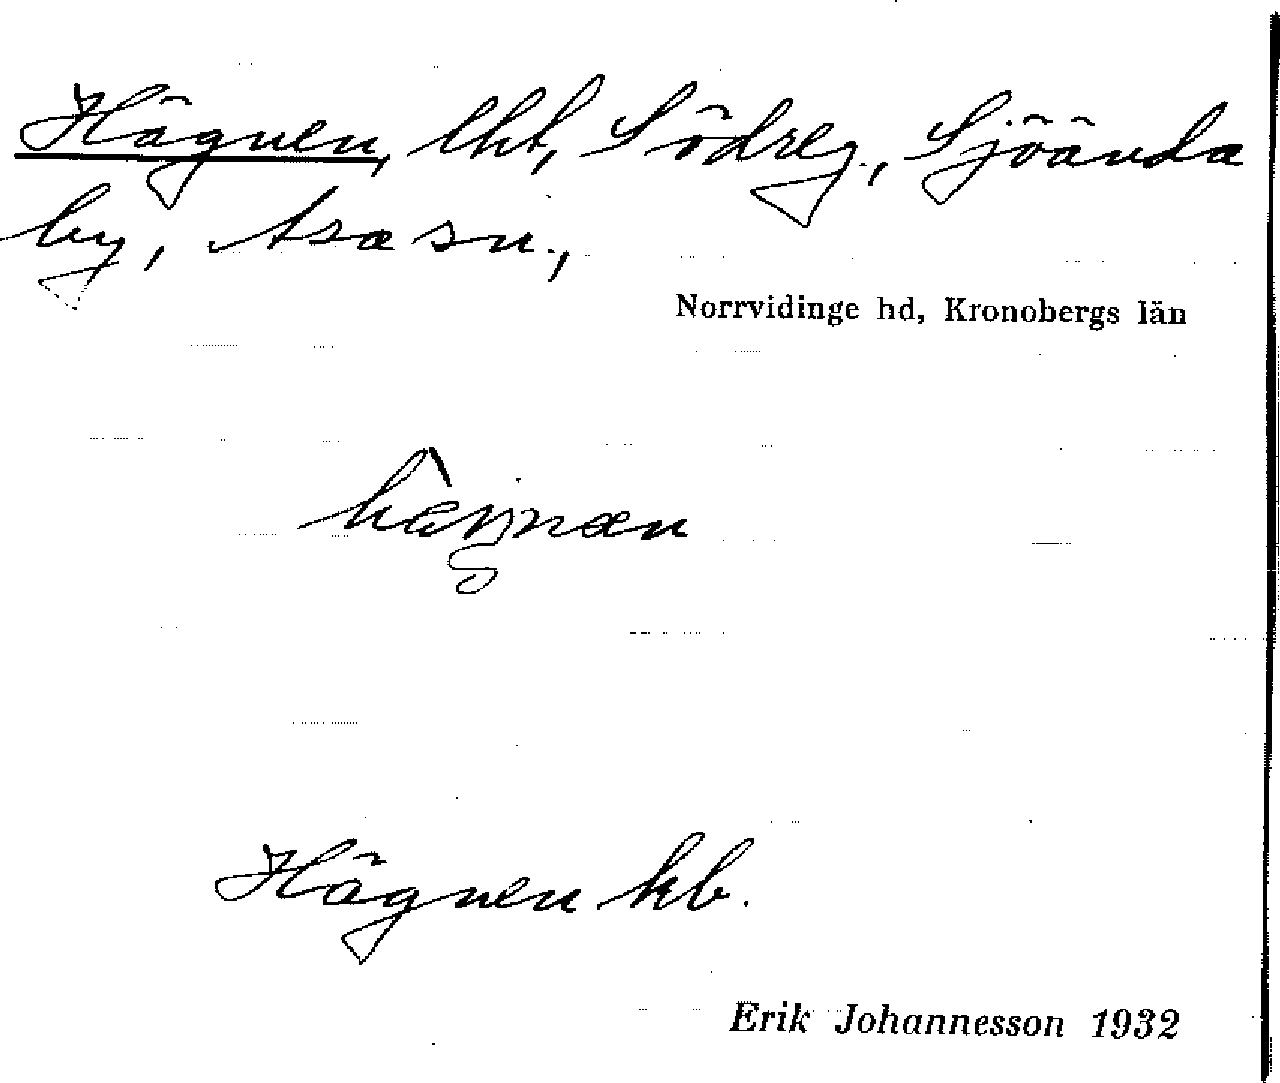 Hägnen, lht, Södreg., Sjöända
by, Asa sn.,
Norrvidinge hd, Kronobergs län
Hägnen kb.
Erik Johannesson 1932